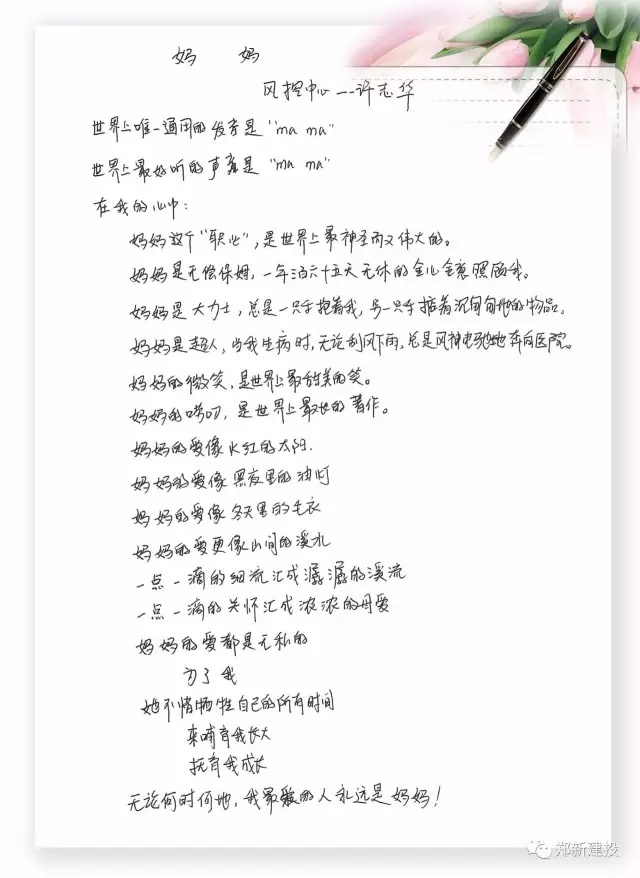 妈 妈
风控中心---许志华
世界上唯一通用的发音是"ma ma"
世界上最好听的声音是"ma ma"
在我的心中:
妈妈这个"职业",是世界上最神圣而又伟大的。
妈妈是无偿保姆,一年三百六十五天无休的全心全意照顾我。
妈妈是大力士,总是一只手抱着我,另一只手拎着沉甸甸的物品。
妈妈是超人,当我生病时,无论刮风下雨,总是风神电驰地奔向医院。
妈妈的微笑,是世界上最甜美的笑。
妈妈的唠叨,是世界上最长的著作。
妈妈的爱像火红的太阳.
妈妈的爱像黑夜里的油灯
妈妈的爱像冬天里的毛衣
妈妈的爱更像山间的溪水
一点一滴的细流汇成潺潺的溪流
一点一滴的关怀汇成浓浓的母爱
妈妈的爱都是无私的
为了我
她不惜牺牲自己的所有时间
来哺育我长大
抚育我成长
无论何时何地,我最爱的人永远是妈妈!
郑新建投